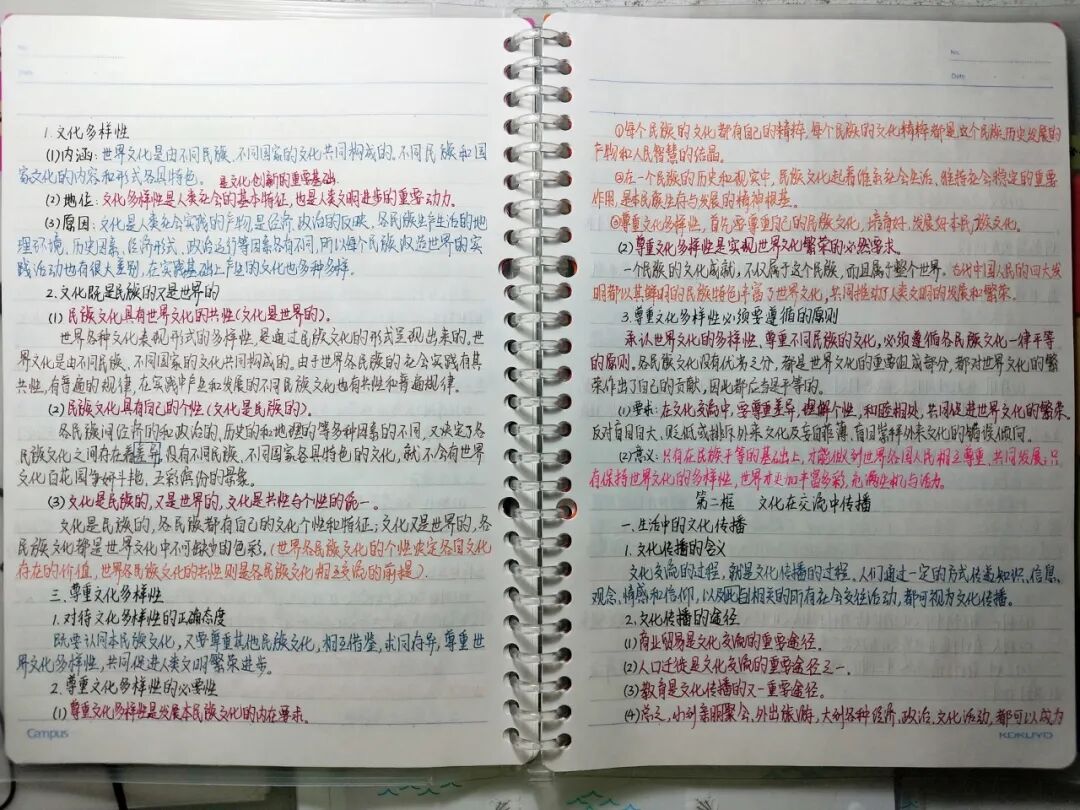 No.
Date
1.文化多样性
(1)内涵:世界文化是由不同民族、不同国家的文化共同构成的。不同民族和国
家文化的内容和形式各具特色。
是文化创新的重要基础.
(2)地位:文化多样性是人类社会的基本特征,也是人类文明进步的重要动力。
(3)原因:文化是人类社会实践的产物,是经济、政治的反映。各民族生产生活的地
理环境、历史因素、经济形式、政治运行等因素各有不同,所以每个民族改造世界的实
践活动也有很大差别,在实践基础上产生的文化也多种多样。
2.文化既是民族的又是世界的
(1)民族文化具有世界文化的共性(文化是世界的)。
世界各种文化表现形式的多样性,是通过民族文化的形式呈现出来的,世
界文化是由不同民族、不同国家的文化共同构成的。由于世界各民族的社会实践有其
共性,有普遍的规律,在实践中产生和发展的不同民族文化也有共性和普遍规律。
(2)民族文化具有自己的个性(文化是民族的)。
各民族间经济的和政治的、历史的和地理的等多种因素的不同,又决定了各
民族文化之间存在着差异,没有不同民族、不同国家各具特色的文化,就不会有世界
文化百花园争妍斗艳、五彩缤纷的景象。
(3)文化是民族的,又是世界的,文化是共性与个性的统一。
文化是民族的,各民族都有自己的文化个性和特征;文化又是世界的,各
民族文化都是世界文化中不可缺少的色彩,(世界各民族文化的个性决定各自文化
存在的价值,世界各民族文化的共性则是各民族文化相互交流的前提)。
三.尊重文化多样性
1.对待文化多样性的正确态度
既要认同本民族文化,又要尊重其他民族文化,相互借鉴,求同存异,尊重世
界文化多样性,共同促进人类文明繁荣进步。
2.尊重文化多样性的必要性
(1)尊重文化多样性是发展本民族文化的内在要求.
Campus
No.
Date
①每个民族的文化都有自己的精粹,每个民族的文化精粹都是这个民族历史发展的
产物和人民智慧的结晶。
②在一个民族的历史和现实中,民族文化起着维系社会生活、维持社会稳定的重要
作用,是本民族生存与发展的精神根基。
③尊重文化多样性,首先要尊重自己的民族文化,培育好、发展好本民族文化。
(2)尊重文化多样性是实现世界文化繁荣的必然要求。
一个民族的文化成就,不仅属于这个民族,而且属于整个世界。古代中国人民的四大发
明都以其鲜明的民族特色丰富了世界文化,共同推动了人类文明的发展和繁荣。
3.尊重文化多样性必须要遵循的原则
承认世界文化的多样性,尊重不同民族的文化,必须遵循各民族文化一律平等
的原则。各民族文化没有优劣之分,都是世界文化的重要组成部分,都对世界文化的繁
荣作出了自己的贡献,因此都应当是平等的。
(1)要求:在文化交流中,要尊重差异,理解个性,和睦相处,共同促进世界文化的繁荣。
反对盲目自大、贬低或排斥外来文化及妄自菲薄、盲目崇拜外来文化的错误倾向。
(2)意义:只有在民族平等的基础上,才能做到世界各国人民相互尊重、共同发展;只
有保持世界文化的多样性,世界才更加丰富多彩,充满生机与活力。
第二框 文化在交流中传播
一.生活中的文化传播
1.文化传播的含义
文化交流的过程,就是文化传播的过程。人们通过一定的方式传递知识、信息、
观念、情感和信仰,以及与此相关的所有社会交往活动,都可视为文化传播。
2.文化传播的途径
(1)商业贸易是文化交流的重要途径.
(2)人口迁徙是文化交流的重要途径之一.
(3)教育是文化传播的又一重要途径。
(4)总之,小到亲朋聚会、外出旅游,大到各种经济、政治、文化活动,都可以成为
KOKUYO